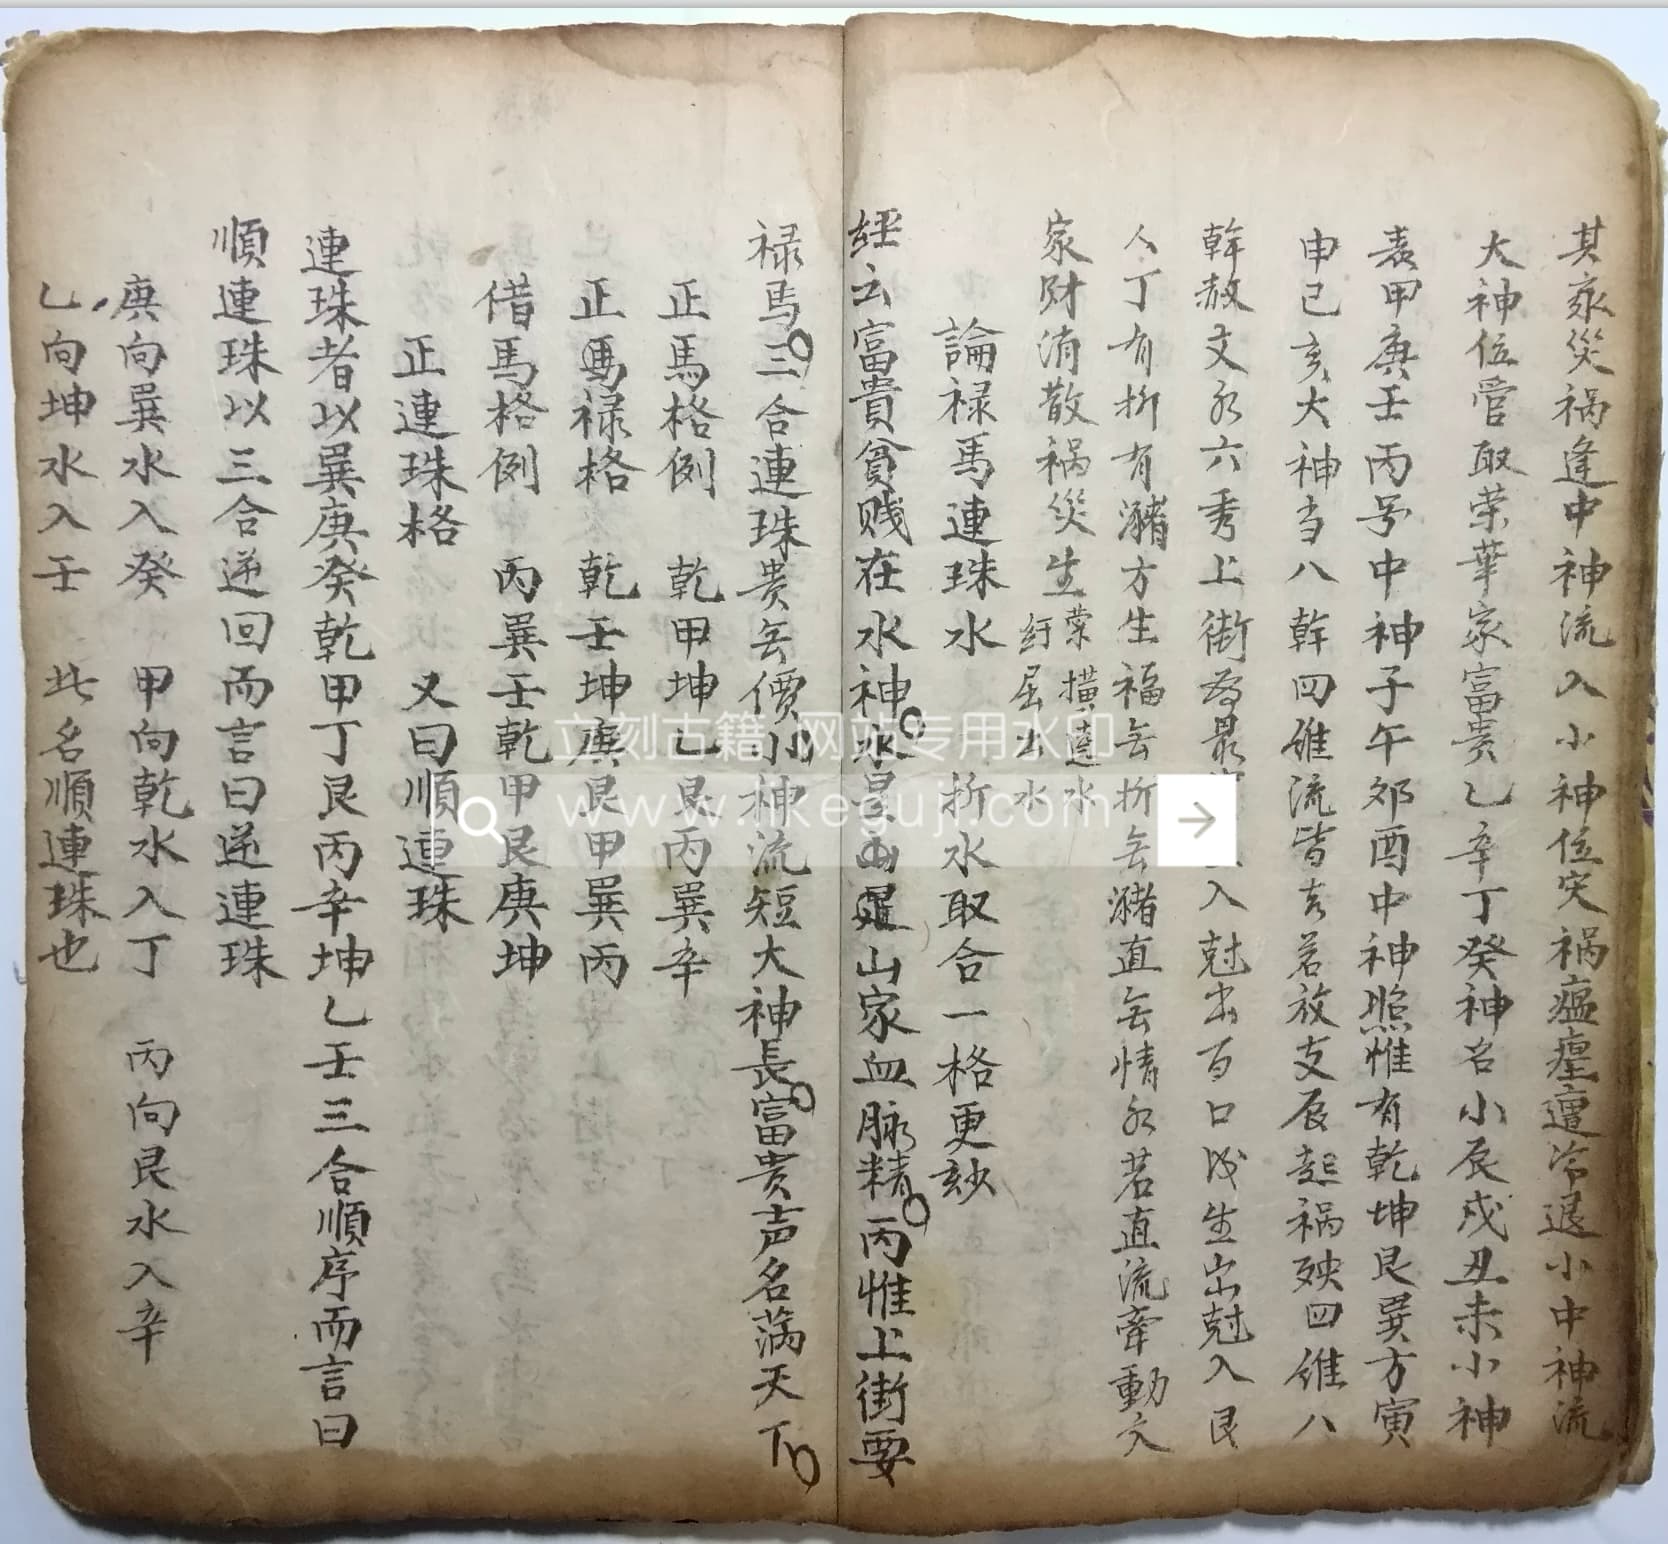 其家災祸逢中神流入小神位灾祸瘟𤶊遭冷退小中神流
大神位管取荣華家富貴乙辛丁癸神名小辰戍丑未小神
表甲庚壬丙号中神子午夘酉中神照惟有乾坤艮巽方寅
申巳亥大神当八幹四維流皆吉若放支辰起祸殃四維八
幹赦文水六秀上街為最入尅出百口以生出尅入艮
人丁有折有瀦方生福無折無瀦直無情水若直流牽動文
家財消散祸災生
荣横遶水
紆屈出水
論禄馬連珠水 折水取合一格更玅
經云富貴貧贱在水神水是山家血脉精丙惟上街要
禄馬三合連珠贵無價小神流短大神長富贵声名满天下
正馬格例 乾甲坤乙艮丙巽辛
正馬禄格 乾壬坤庚艮甲巽丙
借馬格例 丙巽壬乾甲艮庚坤
正連珠格 又曰順連珠
連珠者以巽庚癸乾甲丁艮丙辛坤乙壬三合順序而言曰
順連珠以三合逆回而言曰逆連珠
庚向巽水入癸 甲向乾水入丁 丙向艮水入辛
乙向坤水入壬 此名順連珠也
立刻古籍 网站专用水印
www.likeguji.com